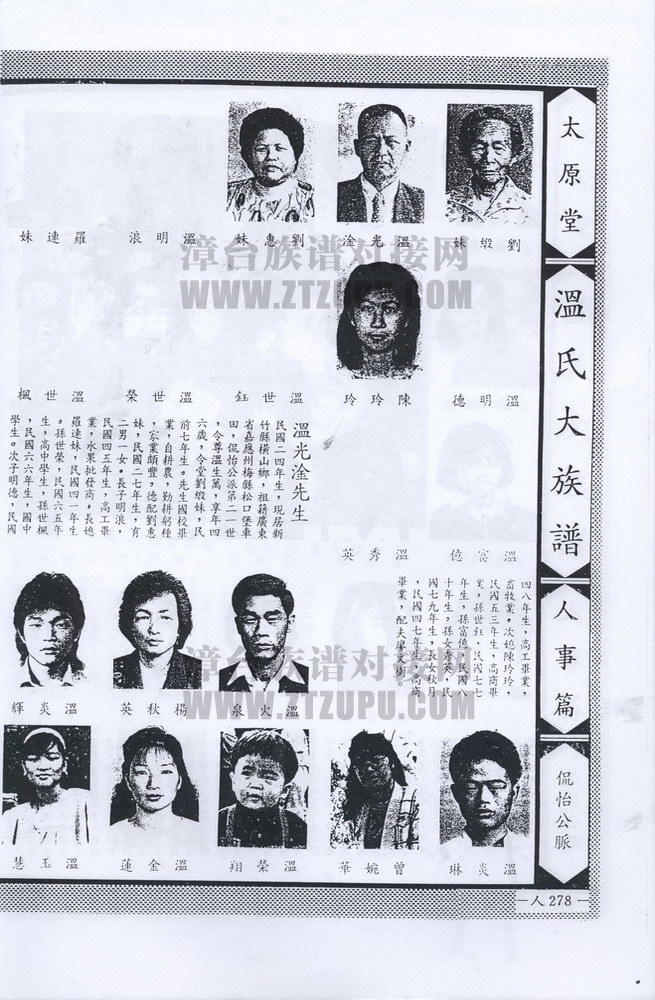 太原堂
溫氏大族譜
人事篇
侃怡公脈
劉煅妹
溫光淦
劉惠妹
溫明浪
羅連妹
溫明德
陳玲玲
溫世鈺
溫世榮
溫世楓
溫富億
溫秀英
溫光淦先生
民國二四年生，現居新
竹縣橫山鄉，祖籍廣東
省嘉應州梅縣松口堡車
田，侃怡公派第二一世
，令尊溫生萬，享年四
六歲，令堂劉煅妹，民
前七年生。先生國校畢
業，自耕農，勤耕躬種
，家業頗豐，德配劉惠
妹，民國二七年生，有
二男一女。長子明浪，
民國四五年生，高工畢
業，水果批發商，長媳
羅連妹，民國四一年生
。孫世榮，民國六五年
生，高中學生，孫世楓
，民國六六年生，國中
學生。次子明德，民國
四八年生，高工畢業，
畜牧業。次媳陳玲玲，
民國五三年生，高商畢
業，孫世鈺，民國七七
年生，孫富億，民國八
十年生，孫女秀英，民
國七九年生，長女秋月
，民國四七年生，高商
畢業，配夫廖文樹。
溫火泉
楊秋英
溫炎輝
溫炎琳
曾婉華
溫榮翔
溫金蓮
溫玉慧
人278
漳台族谱对接网
WWW.ZTZUPU.COM
漳台族谱对接网
WWW.ZTZUPU.COM